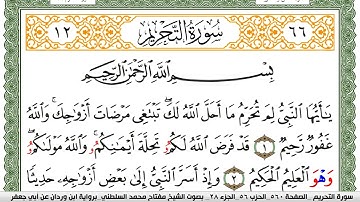 ١٢ سُورَةُ التَّحْرِيمِ ٦٦
بِسْمِ اللَّهِ الرَّحْمَٰنِ الرَّحِيمِ
يَٰأَيُّهَا النَّبِيُّ لِمَ تُحَرِّمُ مَا أَحَلَّ اللَّهُ لَكَ تَبْتَغِي مَرْضَاتَ أَزْوَٰجِكَ وَاللَّهُ
غَفُورٌ رَّحِيمٌ ١ قَدْ فَرَضَ اللَّهُ لَكُمُ تَحِلَّةَ أَيْمَٰنِكُمُ وَاللَّهُ مَوْلَىٰكُمُ
وَهْوَ الْعَلِيمُ الْحَكِيمُ ٢ وَإِذْ أَسَرَّ النَّبِيُّ إِلَىٰ بَعْضِ أَزْوَٰجِهِ حَدِيثًا
سورة التحريم الصفحة ٥٦٠ الحزب ٥٦ الجزء ٢٨ بصوت الشيخ مفتاح محمد السلطني برواية ابن وردان عن أبي جعفر